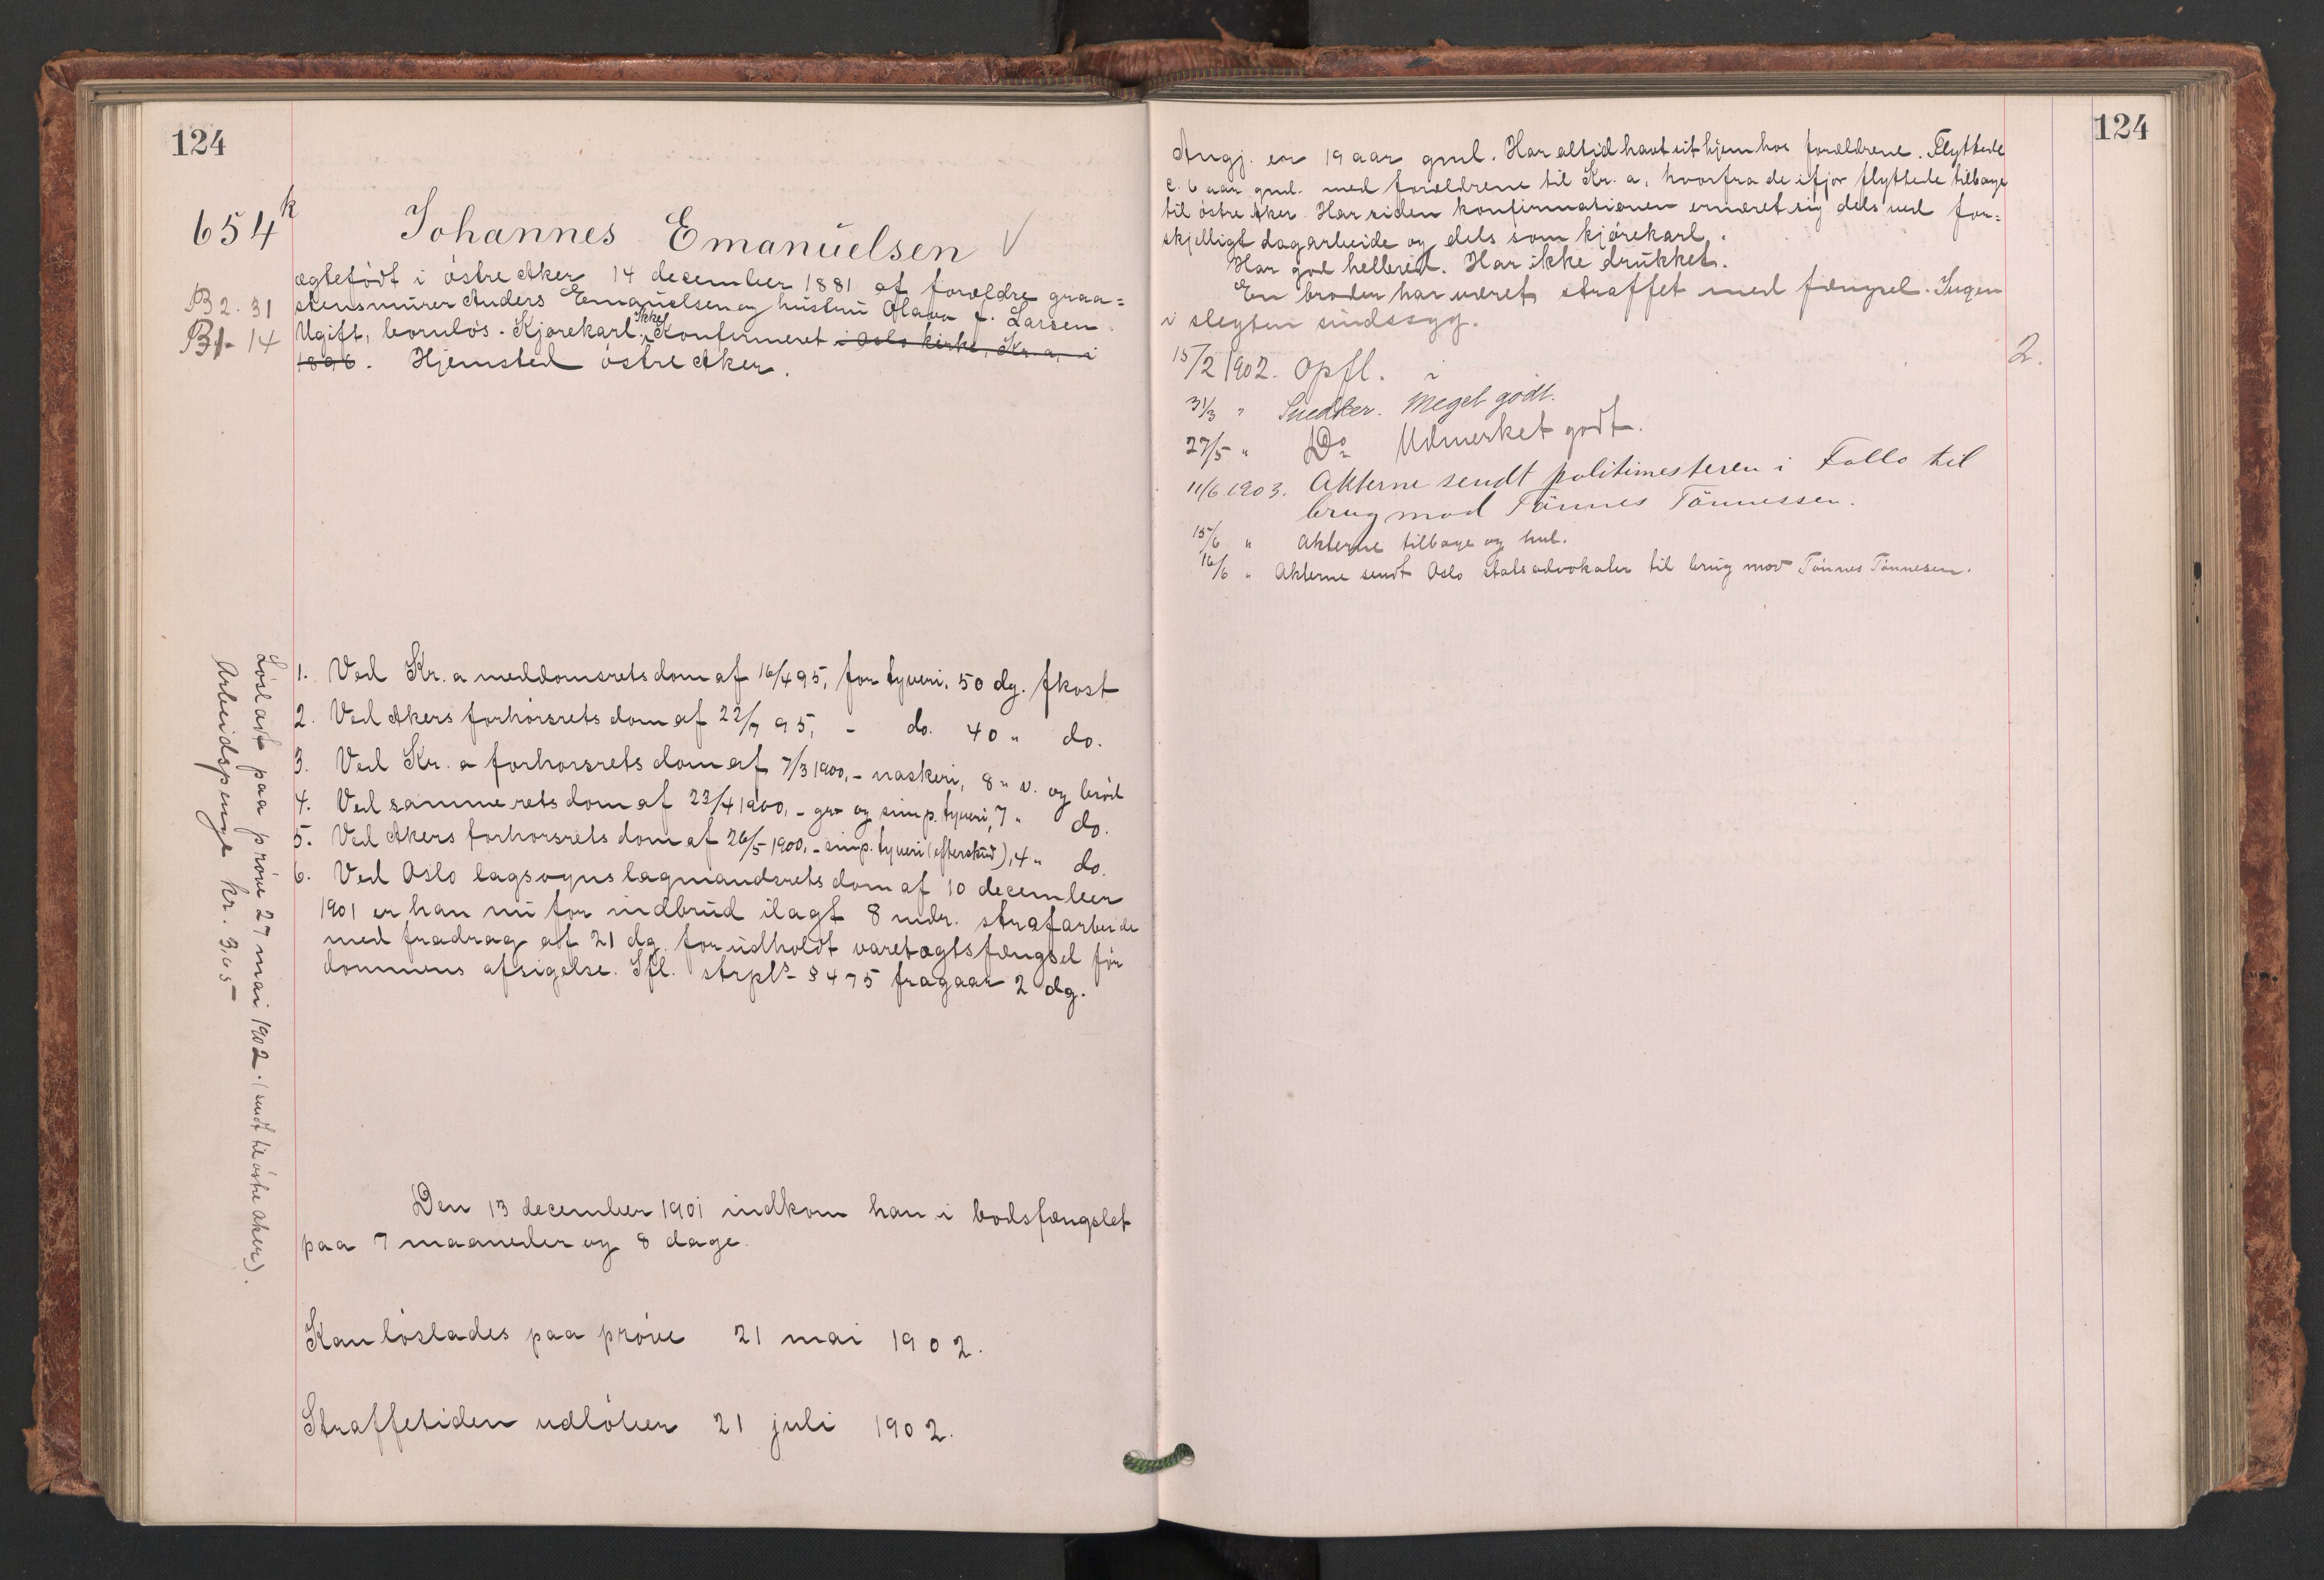 124
654 k
Johannes Emanuelsen √
B 2. 31
B 1 - 14
ægtefødt i østre Aker 14 december 1881 af forældre graa=
stensmurer Anders Emanuelsen og hustru Olava f. Larsen.
Ugift, barnløs. Kjørekarl. Ikke Konfirmeret i Oslo kirke, Kr.a, i
1896. Hjemsted østre Aker.
1. Ved Kr.a meddomsrets dom af 16/4 95, for tyveri, 50 dg. fkost
2. Ved Akers forhørsrets dom af 22/7 95, - do. 40 " do.
3. Ved Kr.a forhørsrets dom af 7/3 1900, - naskeri, 8 " v. og brød
4. Ved samme rets dom af 23/4 1900, - gr. og simp. tyveri, 7 " do.
5. Ved Akers forhørsrets dom af 26/5 1900, - simp. tyveri (efterskud), 4 " do.
6. Ved Oslo lagsogns lagmandsrets dom af 10 december
1901 er han nu for indbrud ilagt 8 mdr. strafarbeide
med fradrag af 21 dg. for udholdt varetægtsfængsel før
dommens afsigelse. Ifl. strpl. § 475 fragaar 2 dg.
Den 13 december 1901 indkom han i bodsfængslet
paa 7 maaneder og 8 dage.
Kan løslades paa prøve 21 mai 1902.
Straffetiden udløber 21 juli 1902.
Løsladt paa prøve 27 mai 1902. (sendt til østre Aker).
Arbeidspenge kr. 3,65
124
Angj. er 19 aar gml. Har altid havt sit hjem hos forældrene. Flyttede
c. 6 aar gml. med forældrene til Kr.a, hvorfra de ifjor flyttede tilbage
til østre Aker. Har siden konfirmationen ernæret sig dels ved for=
skjelligt dagarbeide og dels som kjørekarl.
Har god helbred. Har ikke drukket.
En broder har været straffet med fængsel. Ingen
i slegten sindssyg.
15/2 1902. Opfl. 2.
31/3 " Snedker. Meget godt.
27/5 " Do Udmerket godt.
11/6 1903. Akterne sendt politimesteren i Follo til
brug mod Tönnes Tönnessen.
15/6 " Akterne tilbage og hul.
16/6 " Akterne sendt Oslo statsadvokater til brug mod Tönnes Tönnesen.